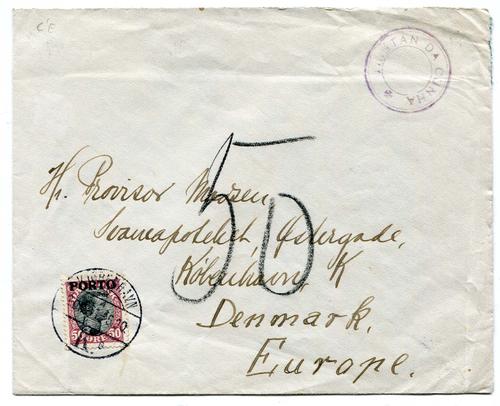 C'E
TRISTAN DA CUNHA *
50
Hr. Provisor Madsen,
Svaneapoteket, Østergade,
København, K
Denmark,
Europe.
KJØBENHAVN
PORTO
50 ØRE 50